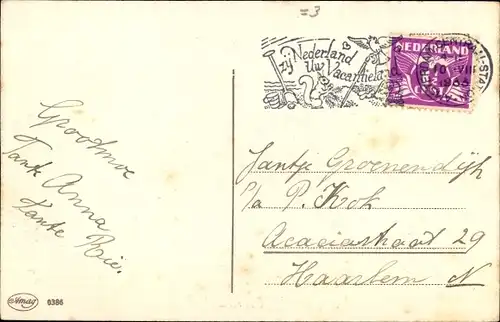 =3
zij Nederland
Uw Vacantieland
NEDERLAND
CENT
CENTRAAL-STA
10 VIII
Grootmoe
Tante Anna
Tante Rie.
Jantje Groenendijk
p/a P. Kok
Acaciastraat 29
Haarlem N
Amag
6386